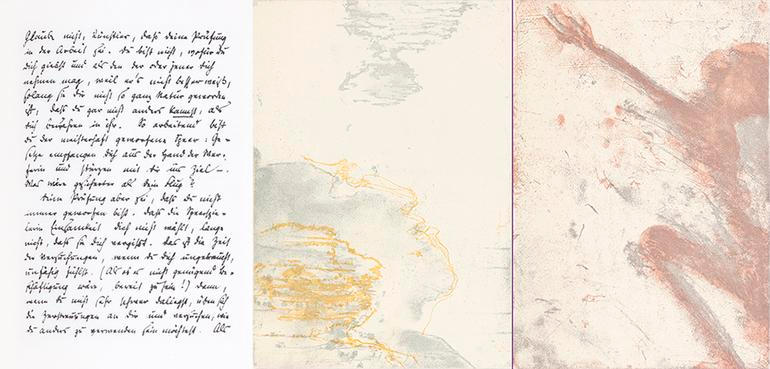 Glaube nicht, Künstler, daß deine Prüfung
in der Arbeit sei. Du bist nicht, wofür du
dich giebst und als den der oder jener dich
nehmen mag, weil er's nicht besser weiß,
solang sie dir nicht so ganz Natur geworden
ist, daß du gar nicht anders kannst, als
dich bewähren in ihr. So arbeitend bist
du der meisterhaft geworfene Speer: Ge-
setze empfangen dich aus der Hand der Wer-
ferin und stürzen mit dir ins Ziel –.
Was wäre gesicherter als dein Flug?
Deine Prüfung aber sei, daß du nicht
immer geworfen bist. Daß die Speerspie-
lerin Einsamkeit dich nicht wählt, lange
nicht, daß sie dich vergißt. Das ist die Zeit
der Versuchungen, wenn du dich ungebraucht,
unfähig fühlst. (Als ob es nicht genügend Be-
schäftigung wäre, bereit zu sein!) Dann,
wenn du nicht sehr schwer daliegst, üben sich
die Zerstreuungen an dir und versuchen, wie
du anders zu verwenden sein möchtest. Als